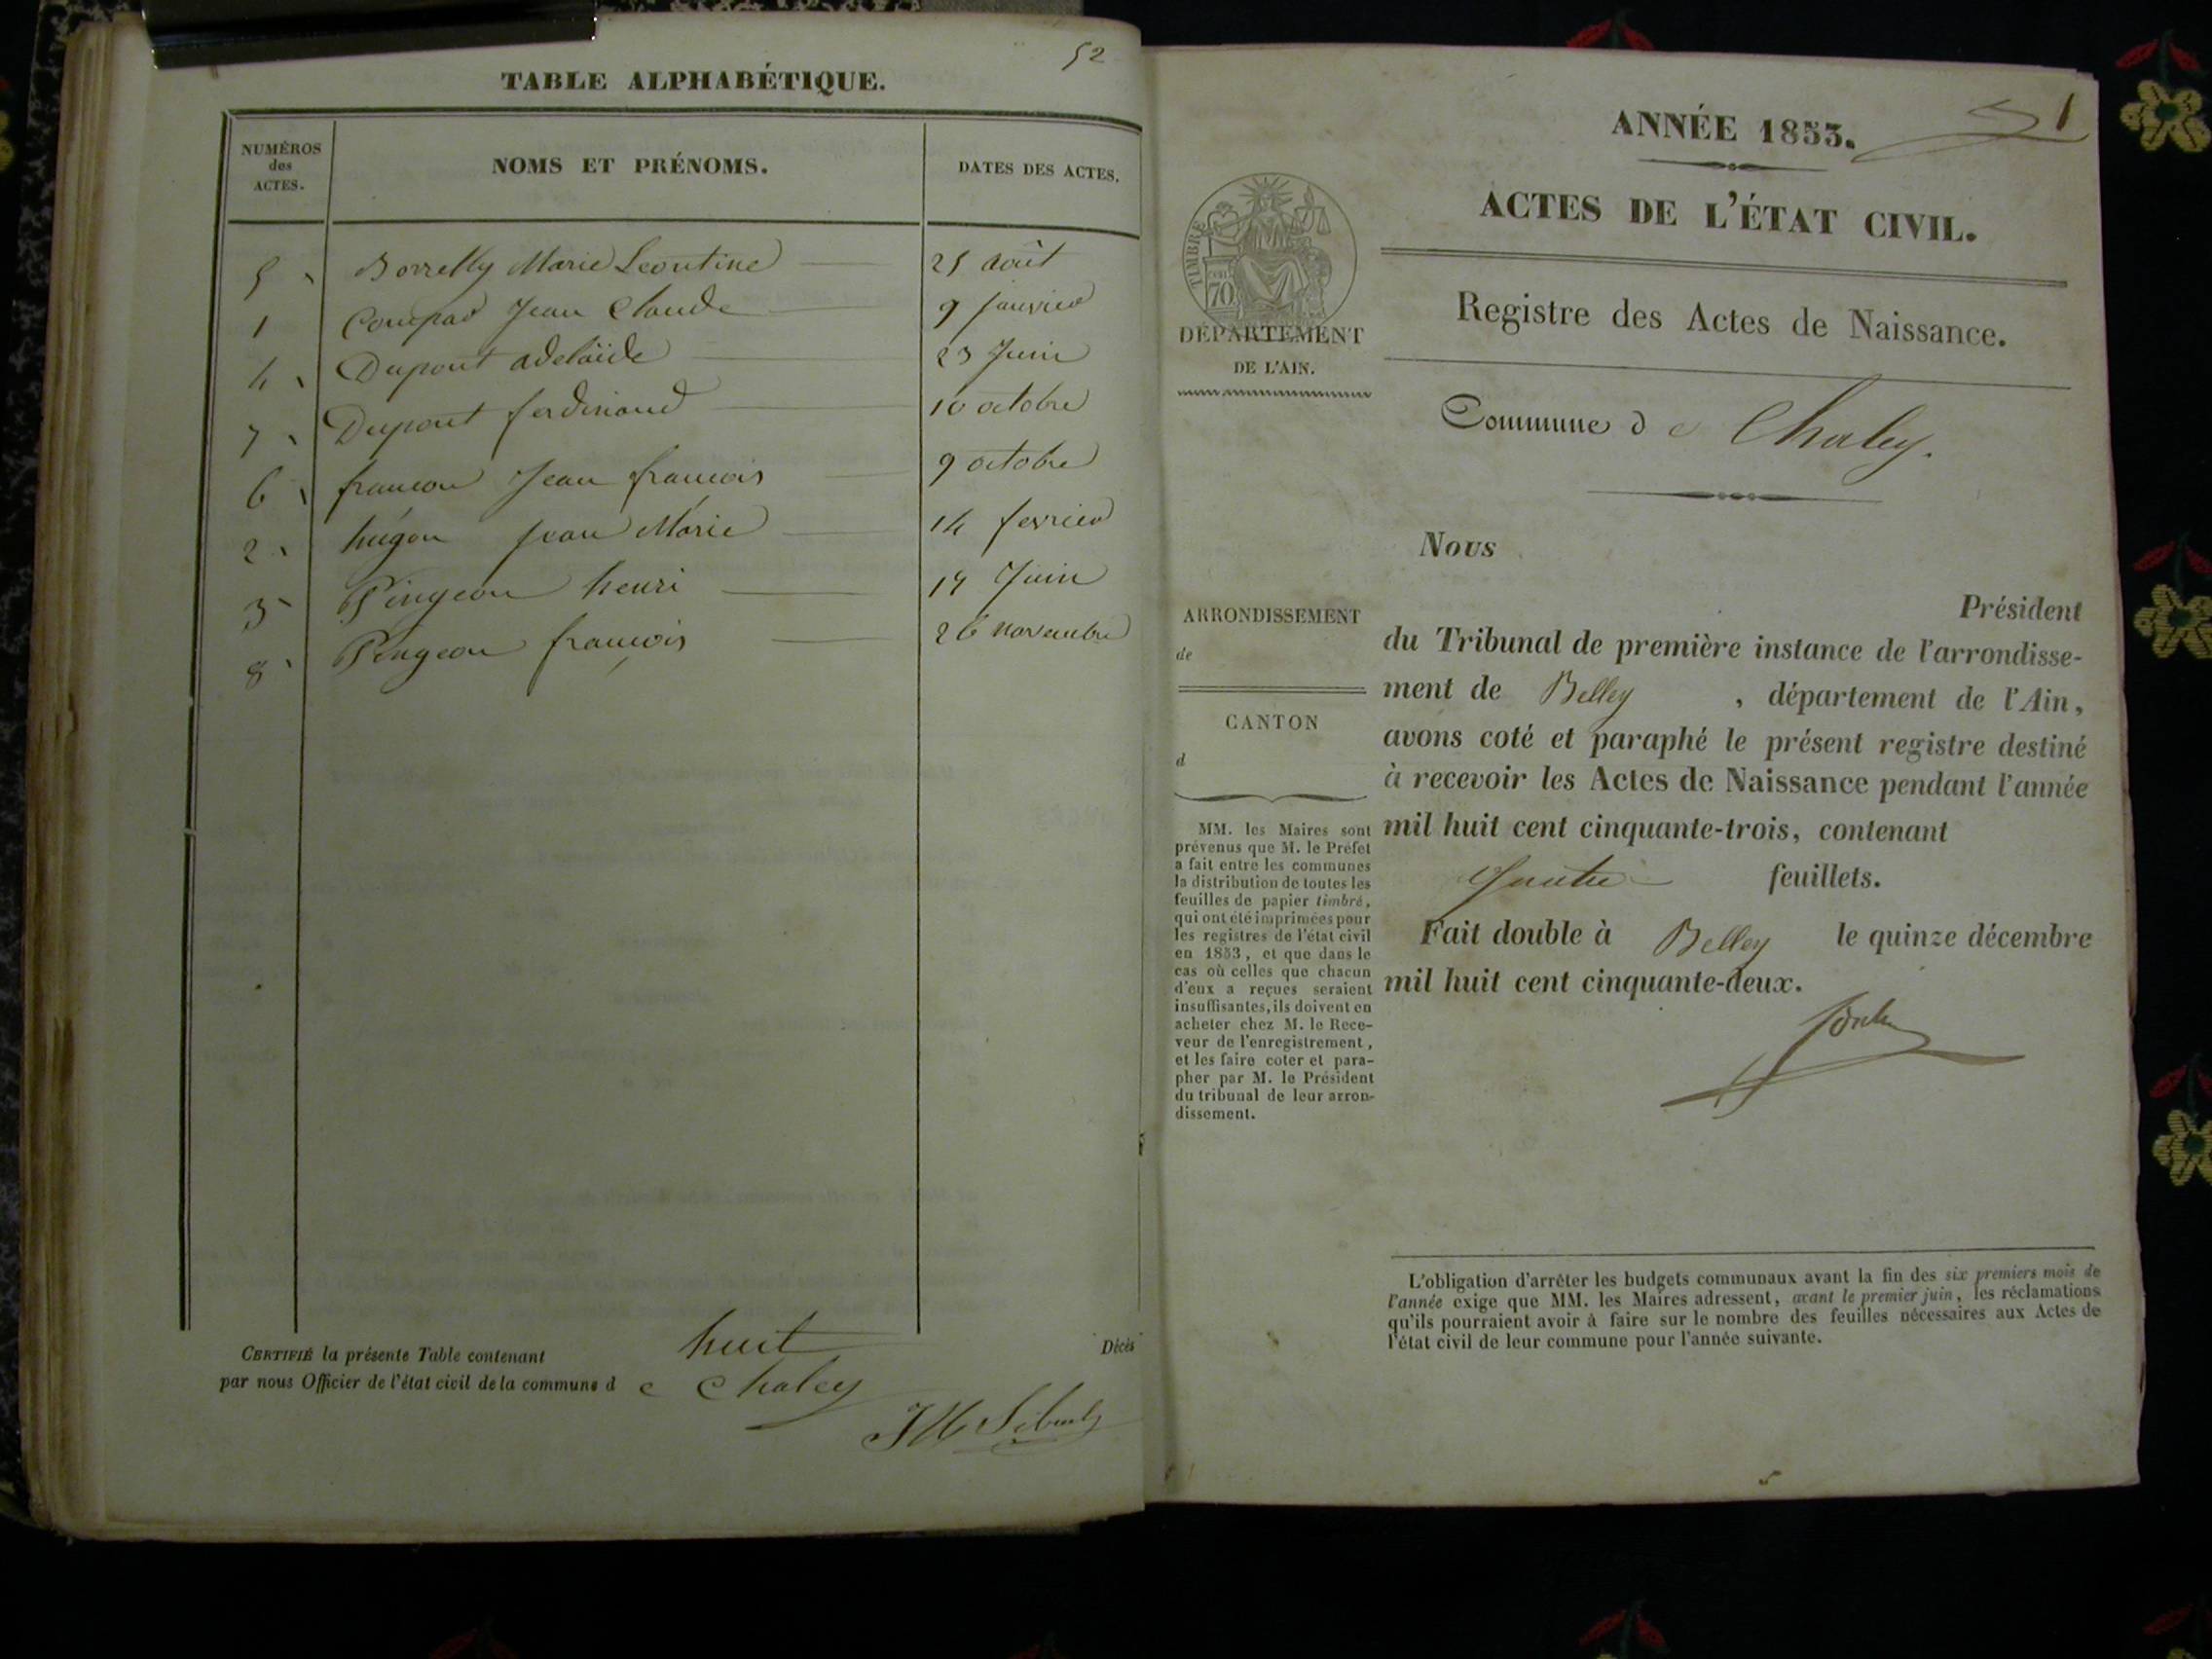 52
TABLE ALPHABÉTIQUE.
NUMÉROS
des
ACTES.
NOMS ET PRÉNOMS.
DATES DES ACTES.
5 Borrelly Marie Leontine 25 août
1 Jean Claude 9 janvier
4 Dupont adelaïde 23 Juin
7 Dupont ferdinand 10 octobre
6 françon Jean françois 9 octobre
2 hugon Jean Marie 14 fevrier
3 Pingeon henri 19 Juin
8 Pingeon françois 26 novembre
CERTIFIÉ la présente Table contenant huit Décès
par nous Officier de l'état civil de la commune de Chaley
ANNÉE 1853. 1
ACTES DE L'ÉTAT CIVIL.
TIMBRE
70
DÉPARTEMENT
DE L'AIN.
Registre des Actes de Naissance.
Commune de Chaley.
Nous
Président
du Tribunal de première instance de l'arrondisse-
ment de Belley, département de l'Ain,
avons coté et paraphé le présent registre destiné
à recevoir les Actes de Naissance pendant l'année
mil huit cent cinquante-trois, contenant
quatre feuillets.
Fait double à Belley le quinze décembre
mil huit cent cinquante-deux.
ARRONDISSEMENT
de
CANTON
d
MM. les Maires sont
prévenus que M. le Préfet
a fait entre les communes
la distribution de toutes les
feuilles de papier timbré,
qui ont été imprimées pour
les registres de l'état civil
en 1853, et que dans le
cas où celles que chacun
d'eux a reçues seraient
insuffisantes, ils doivent en
acheter chez M. le Rece-
veur de l'enregistrement,
et les faire coter et para-
pher par M. le Président
du tribunal de leur arron-
dissement.
L'obligation d'arrêter les budgets communaux avant la fin des six premiers mois de
l'année exige que MM. les Maires adressent, avant le premier juin, les réclamations
qu'ils pourraient avoir à faire sur le nombre des feuilles nécessaires aux Actes de
l'état civil de leur commune pour l'année suivante.